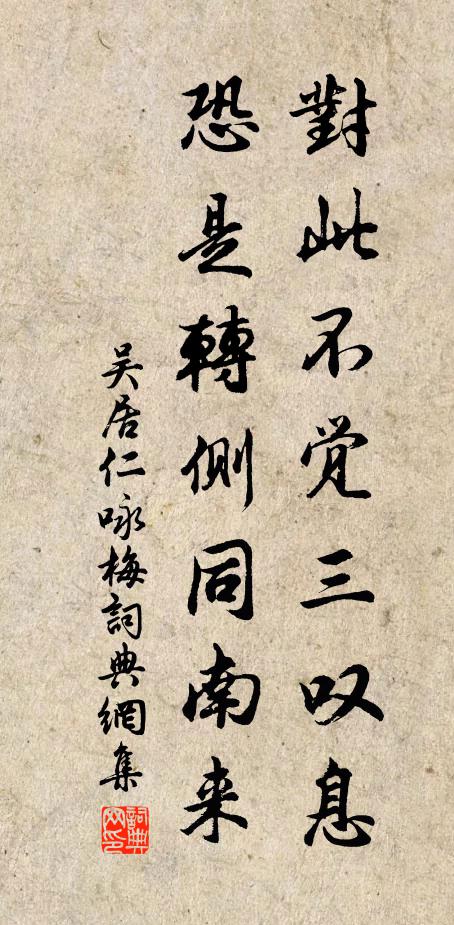 對此不觉三叹息
恐是轉側同南来
吴居仁咏梅詞典網集
詞典網印